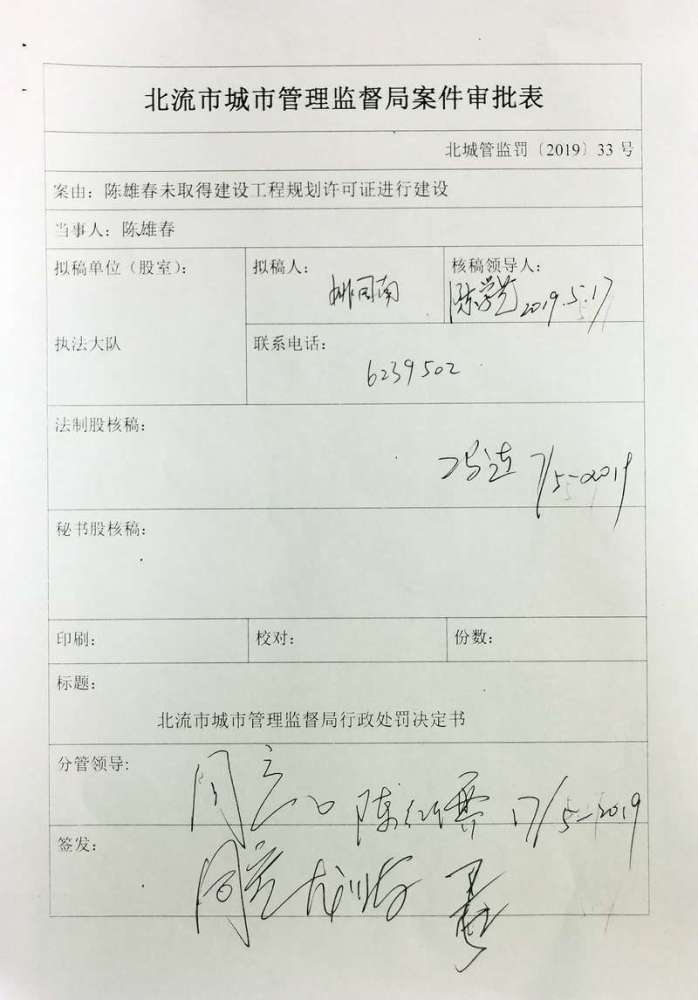 北流市城市管理监督局案件审批表
北城管监罚〔2019〕33号
案由：陈雄春未取得建设工程规划许可证进行建设
当事人：陈雄春
拟稿单位（股室）：
拟稿人：
核稿领导人：
2019.5.17
执法大队
联系电话：
6239502
法制股核稿：
17/5-2019
秘书股核稿：
印刷：
校对：
份数：
标题：
北流市城市管理监督局行政处罚决定书
分管领导：
同意
17/5-2019
签发：
同意